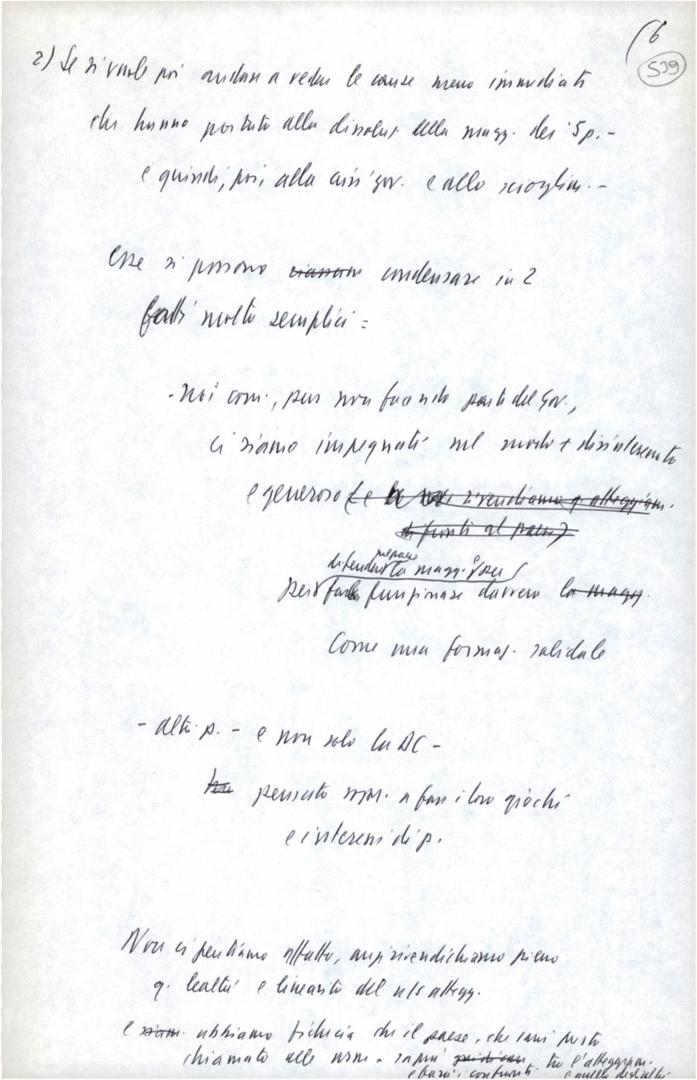 6
539
2) Se si vuole poi andare a vedere le cause meno immediate
che hanno portato alla dissoluz. della magg. dei 5 p. -
e quindi, poi, alla crisi gov. e allo scioglim. -
Esse si possono condensare in 2
fatti molto semplici :
- Noi com., pur non facendo parte del Gov.,
ci siamo impegnati nel modo + disinteressato
e generoso (e noi rivendiamo q. atteggiam.
di fronti al paese)
la magg.
per funzionare davvero la magg.
Come una formaz. solidale
- altri p. - e non solo la DC -
pensato a fare i loro giochi
e interessi di p.
Non ci pentiamo affatto, anzi rivendichiamo pieno
q. lealtà e linearità del n/s attegg.
e abbiamo fiducia che il paese, che sarà presto
chiamato alle urne - saprà